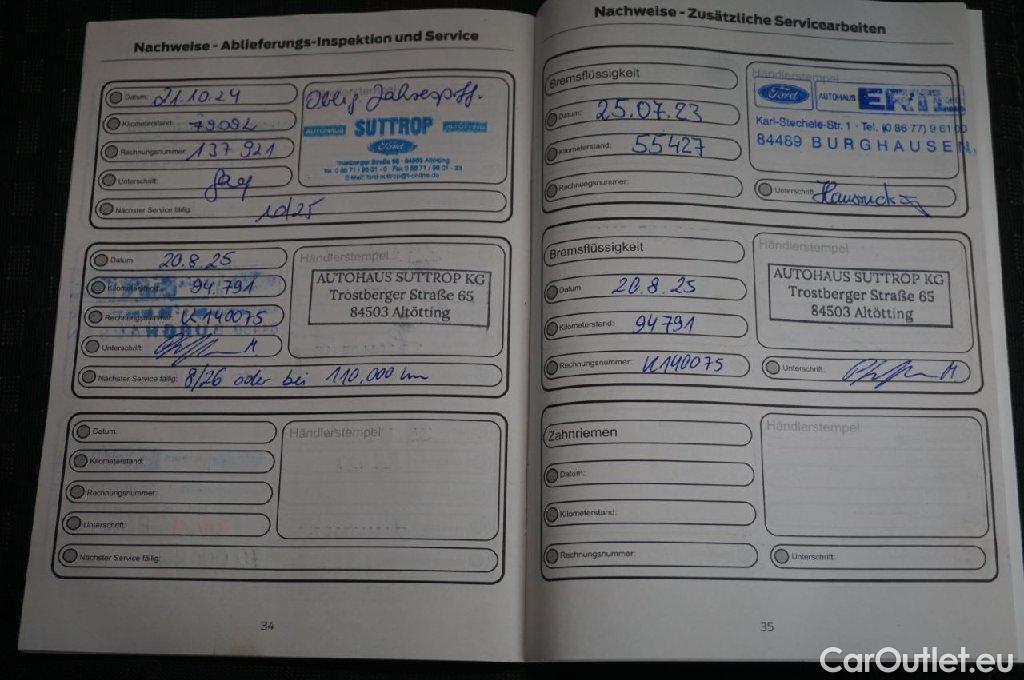 Nachweise - Ablieferungs-Inspektion und Service
Datum: 21.10.24
Kilometerstand: 79092
Rechnungsnummer: 137921
Unterschrift:
Nächster Service fällig: 10/25
AUTOHAUS SUTTROP ALTÖTTING
Ford
Trostberger Straße 65 · 84503 Altötting
Datum: 20.8.25
Kilometerstand: 94.791
Rechnungsnummer: K140075
Unterschrift:
Nächster Service fällig: 8/26 oder bei 110.000 km
Händlerstempel
AUTOHAUS SUTTROP KG
Trostberger Straße 65
84503 Altötting
Datum:
Kilometerstand:
Rechnungsnummer:
Unterschrift:
Nächster Service fällig:
Händlerstempel
34
Nachweise - Zusätzliche Servicearbeiten
Bremsflüssigkeit
Datum: 25.07.23
Kilometerstand: 55427
Rechnungsnummer:
Händlerstempel
Ford AUTOHAUS
Karl-Stechele-Str. 1 - Tel. (0 86 77) 9 61 00
84489 BURGHAUSEN
Unterschrift:
Bremsflüssigkeit
Datum: 20.8.25
Kilometerstand: 94791
Rechnungsnummer: K140075
Händlerstempel
AUTOHAUS SUTTROP KG
Trostberger Straße 65
84503 Altötting
Unterschrift:
Zahnriemen
Datum:
Kilometerstand:
Rechnungsnummer:
Händlerstempel
Unterschrift:
35
CarOutlet.eu